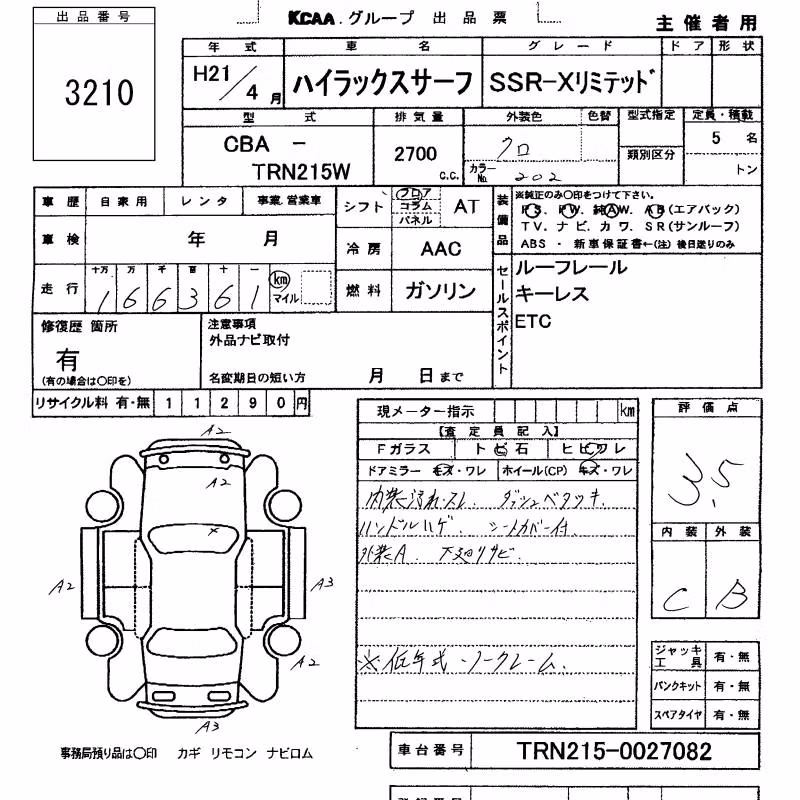 出品番号
3210
KCAA.グループ 出品票
主催者用
年式 車名 グレード ドア 形状
H21/4月 ハイラックスサーフ SSR-Xリミテッド
型式 排気量 外装色 色替 型式指定 定員・積載
CBA -
TRN215W
2700 c.c.
クロ
カラーNo. 202
類別区分
5 名
トン
車歴 自家用 レンタ 事業.営業車
車検 年 月
走行 十万 万 千 百 十 一
166361 km マイル
シフト フロア コラム パネル AT
冷房 AAC
燃料 ガソリン
装備品
※純正のみ〇印をつけて下さい。
PS. PW. 純AW. AB(エアバック)
TV. ナビ. カワ. SR(サンルーフ)
ABS ・ 新車保証書←(注) 後日送りのみ
セールスポイント
ルーフレール
キーレス
ETC
修復歴 箇所
有
(有の場合は〇印を)
注意事項
外品ナビ取付
名変期日の短い方 月 日まで
リサイクル料 有・無 11290円
現メーター指示 km
【査定員記入】
Fガラス トビ石 ヒビワレ
ドアミラー キズ・ワレ ホイール(CP) キズ・ワレ
内装汚れスレ. ダッシュベタツキ.
ハンドルハゲ. シートカバー付
外装A. 下廻サビ.
※低年式・ノークレーム.
評価点
3.5
内装 外装
C B
ジャッキ工具 有・無
パンクキット 有・無
スペアタイヤ 有・無
A2
A2
×
A2
A3
A2
A3
事務局預り品は〇印 カギ リモコン ナビロム
車台番号 TRN215-0027082